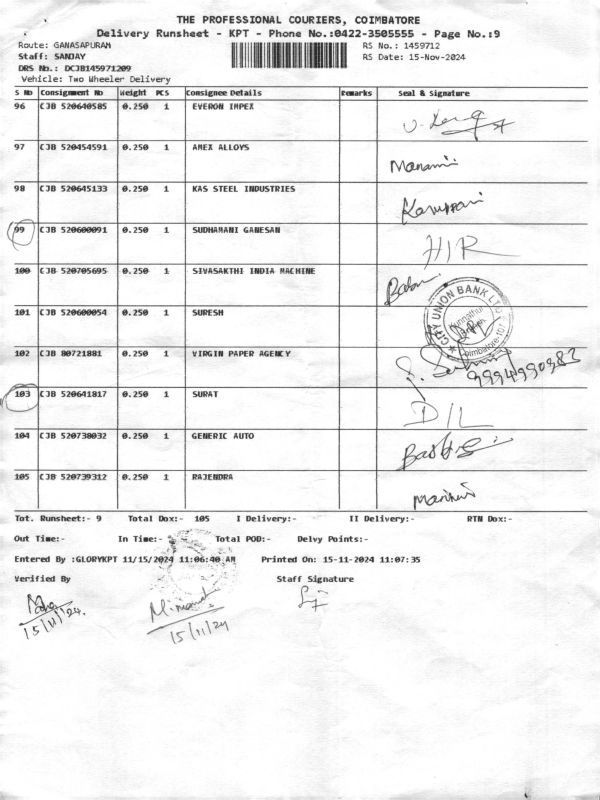 THE PROFESSIONAL COURIERS, COIMBATORE
Delivery Runsheet - KPT - Phone No.:0422-3505555 - Page No.:9
Route: GANASAPURAM RS No.: 1459712
Staff: SANJAY RS Date: 15-Nov-2024
DRS No.: DCJB145971209
Vehicle: Two Wheeler Delivery
S No Consignment No Weight PCS Consignee Details Remarks Seal & Signature
96 CJB 520640585 0.250 1 EVERON IMPEX
97 CJB 520454591 0.250 1 AMEX ALLOYS
98 CJB 520645133 0.250 1 KAS STEEL INDUSTRIES
99 CJB 520600091 0.250 1 SUDHAMANI GANESAN H/R
100 CJB 520705695 0.250 1 SIVASAKTHI INDIA MACHINE
101 CJB 520600054 0.250 1 SURESH CITY UNION BANK LTD
102 CJB 80721881 0.250 1 VIRGIN PAPER AGENCY 9994990983
103 CJB 520641817 0.250 1 SURAT D/L
104 CJB 520738032 0.250 1 GENERIC AUTO
105 CJB 520739312 0.250 1 RAJENDRA
Tot. Runsheet:- 9 Total Dox:- 105 I Delivery:- II Delivery:- RTN Dox:-
Out Time:- In Time:- Total POD:- Delvy Points:-
Entered By :GLORYKPT 11/15/2024 11:06:40 AM Printed On: 15-11-2024 11:07:35
Verified By Staff Signature
15/11/24.
15/11/24